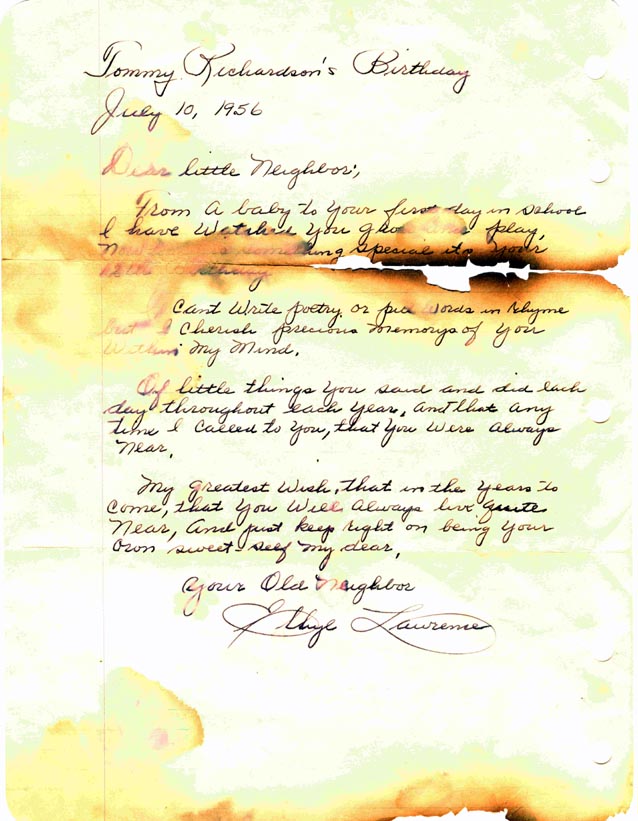 Tommy Richardson's Birthday
July 10, 1956
Dear little Neighbor,
From a baby to your first day in school
I have Watched You grow and play,
Now something special its your
12th Birthday
I Cant Write poetry or put Words in Rhyme
but I Cherish precious Memorys of You
Within My Mind.
Of little things You said and did each
day throughout each Year, And that any
time I Called to You, that You Were Always
Near,
My greatest Wish, that in the Years to
Come, that You Will Always live quite
Near, And just keep right on being Your
Own sweet self my dear,
Your Old Neighbor
Ethyl Lawrence